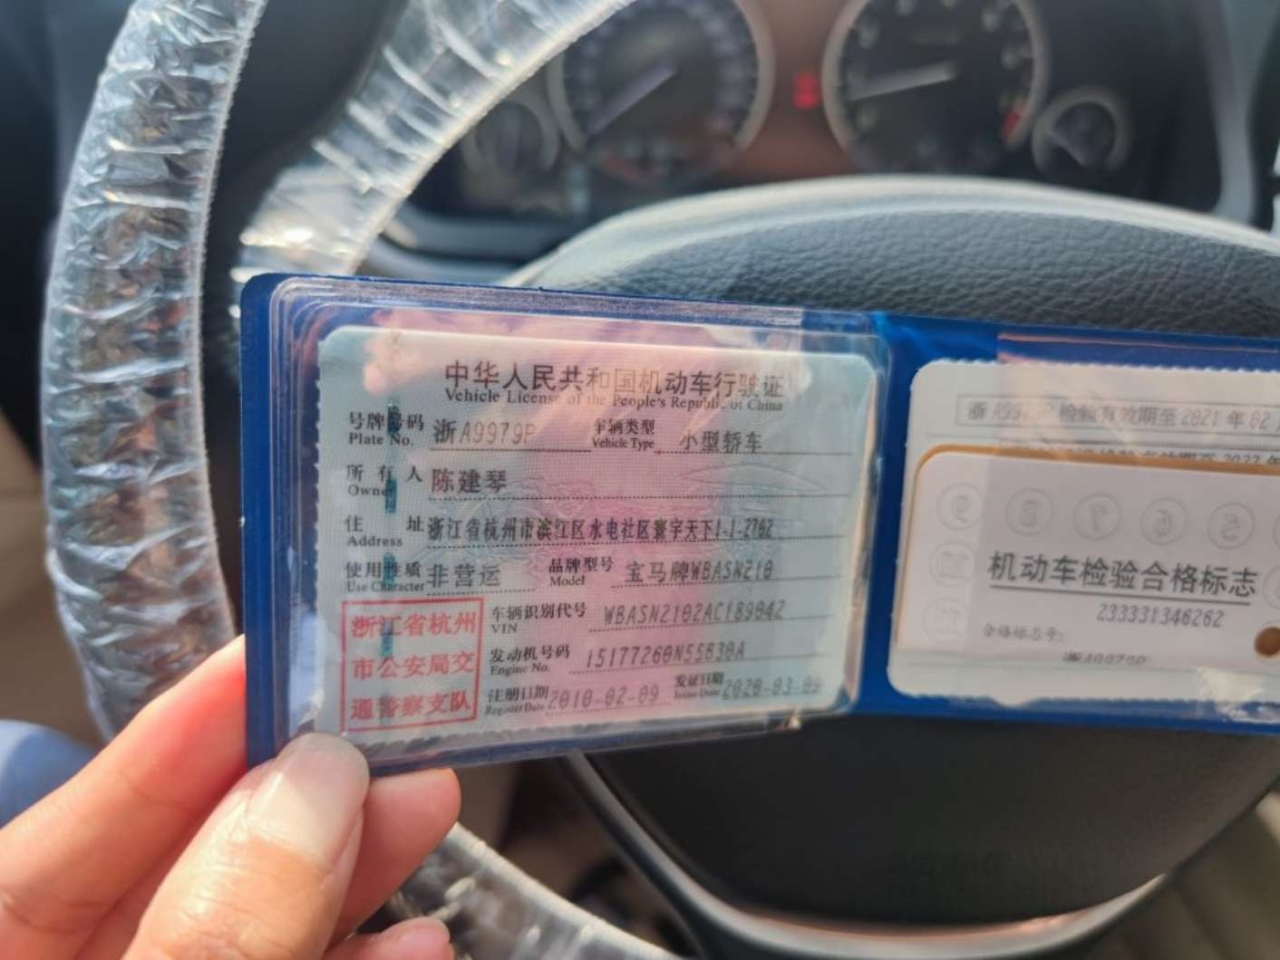 中华人民共和国机动车行驶证
Vehicle License of the People's Republic of China
号牌号码 浙A9979P 车辆类型 小型轿车
Plate No. Vehicle Type
所有人 陈建琴
Owner
住址 浙江省杭州市滨江区水电社区寰宇天下1-1-2702
Address
使用性质 非营运 品牌型号 宝马牌WBASN210
Use Character Model
浙江省杭州
市公安局交
通警察支队
车辆识别代号 WBASN2102AC189042
VIN
发动机号码 15177260N55B30A
Engine No.
注册日期 2010-02-09 发证日期 2020-03-09
Register Date Issue Date
浙A9979P 检验有效期至2021年02
机动车检验合格标志
233331346262
合格标志号:
浙A9979P